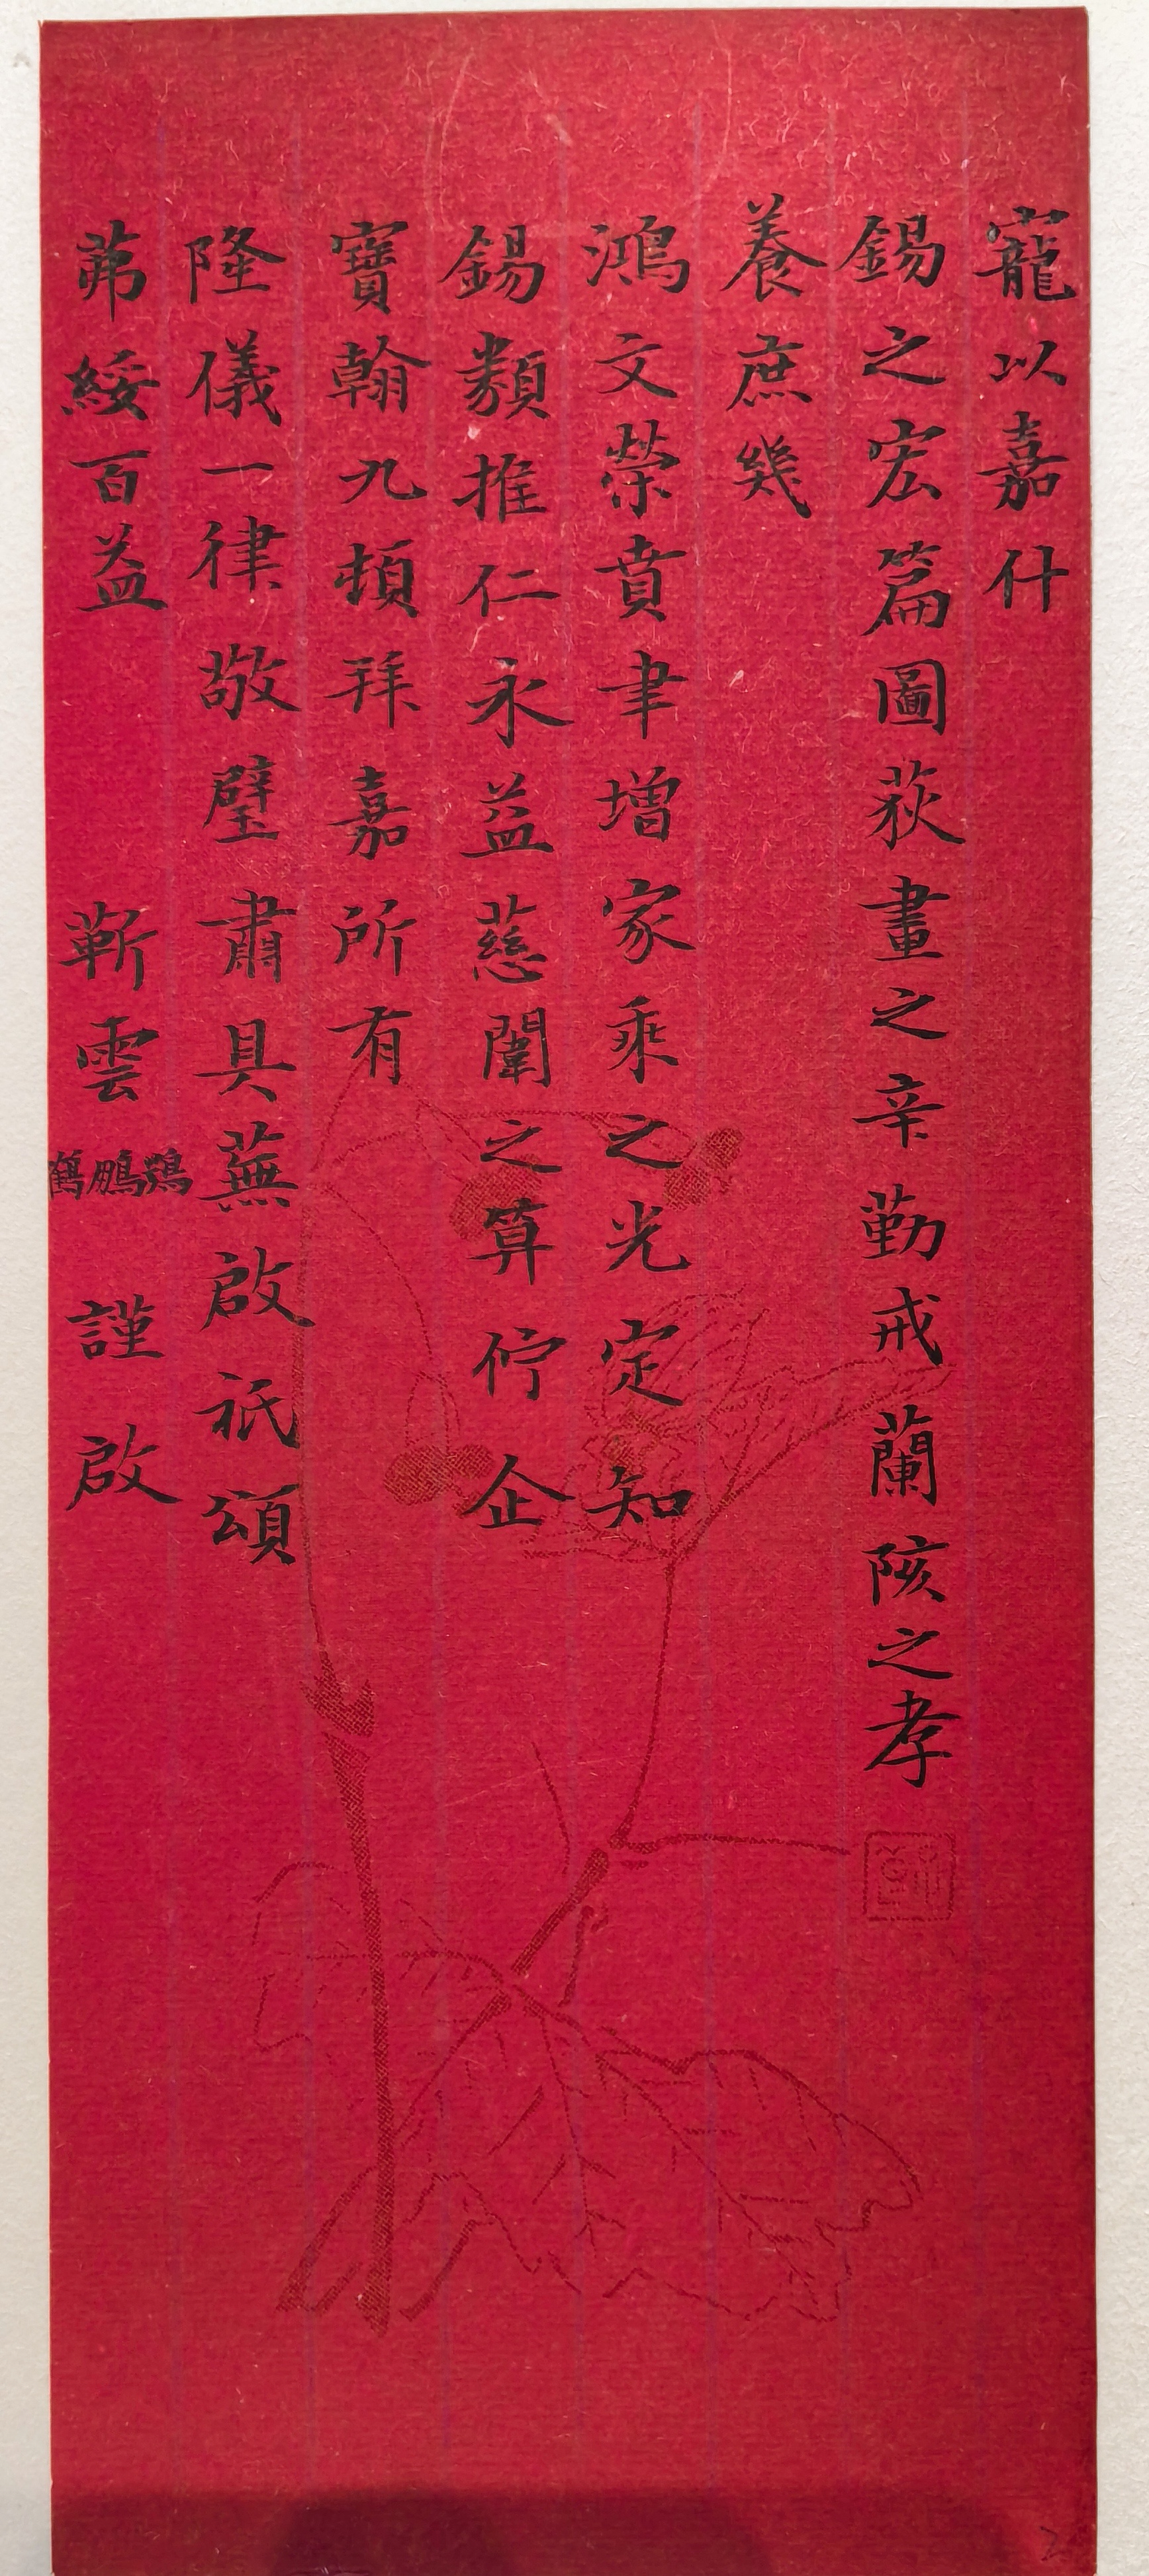 寵以嘉什
錫之宏篇圖荻畫之辛勤戒蘭陔之孝
養庶幾
鴻文榮賁聿增家乘之光定知
錫類推仁永益慈闈之算佇企
寶翰九頓拜嘉所有
隆儀一律敬璧肅具蕪啟祇頌
茀綏百益 靳雲鶚鵬鶴 謹啟